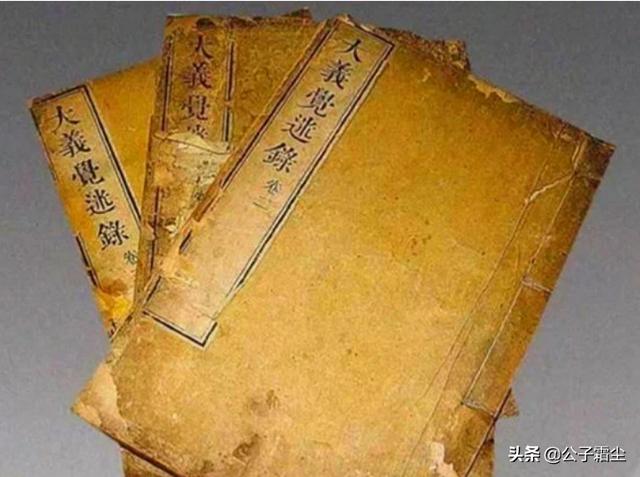 大義覺迷錄 卷
大義覺
大義覺迷錄 卷二
头条 @公子霜尘